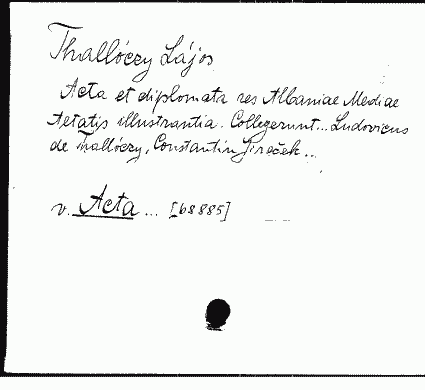 Thallóczy Lájos
Acta et diplomata res Albaniae Mediae
Aetatis illustrantia. Collegerunt... Ludovicus
de Thallóczy, Constantin Jireček...
v. Acta... [68885]